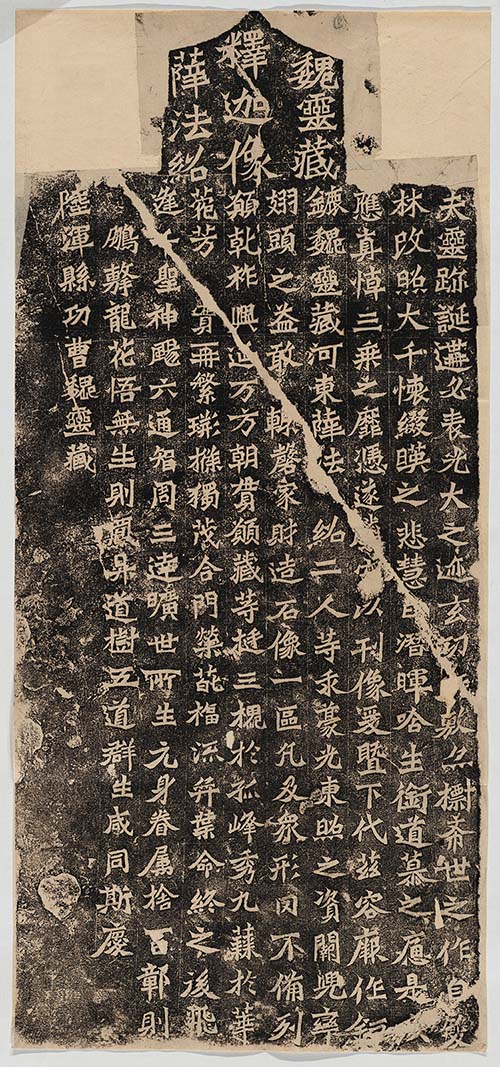 魏靈藏
釋迦像
薛法紹
夫靈跡誕遘必表光大之迹玄功敷亦標希世之作自雙
林改照大千懷綴暎之悲慧日潛暉唅生銜道慕之痛是
應真悼三乘之靡憑遂以刊像爰暨下代茲容厥作鉅
鏕魏靈藏河東薛法紹二人等求豪光東照之資闕兜率
翅頭之益敢輒罄家財造石像一區凡及眾形罔不備列
願乾祚興延万方朝貫願藏等挺三槐於孤峰秀九蕀於華
苑芳實再繁荊條獨茂合門榮葩福流弈葉命終之後飛
逢千聖神颺六通智周三達曠世所生元身眷屬捨百鄣則
鵬擊龍花悟無生則昇道樹五道群生咸同斯慶
陸渾縣功曹魏靈藏